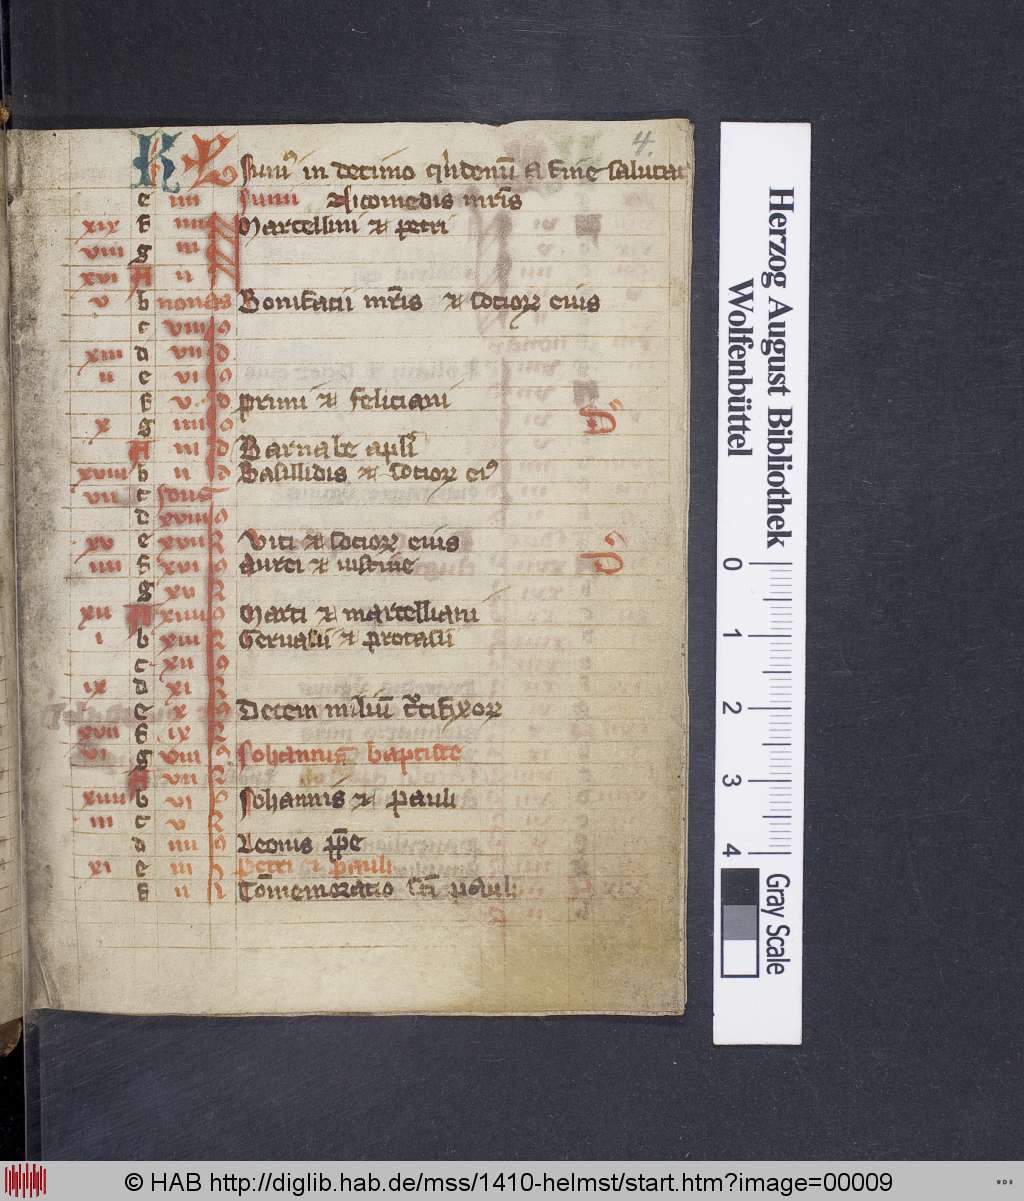 4.
KL Junius in decimo q̄ndenū a fine salutat
e iiii Junii Nicomedis mr̄is
xix f iiii Marcellini et petri
viii g iii
xvi A ii
v b nonas Bonifacii mr̄is et socior eius
c viii
xiii d vii d
ii e vi
f v d primi et feliciani
x g iiii
A iii d Barnabe apl̄i
xviii b ii Basillidis et socior ei9
vii c Idus
d xviii
xv e xvii Viti et socior eius
iiii f xvi Aurei et iustine
g xv
xii A xiiii Marci et marcelliani
i b xiii Geruasii et protasii
c xii
ix d xi
e x Decem miliū
xvii f ix
vi g viii Johannis baptiste
A vii
xiiii b vi Johannis et pauli
iii c v
d iiii Leonis pp̄e
xi e iii Petri et pauli
f ii Cōmemoratio sc̄i pauli
Herzog August Bibliothek
Wolfenbüttel
0 1 2 3 4
Gray Scale
© HAB http://diglib.hab.de/mss/1410-helmst/start.htm?image=00009